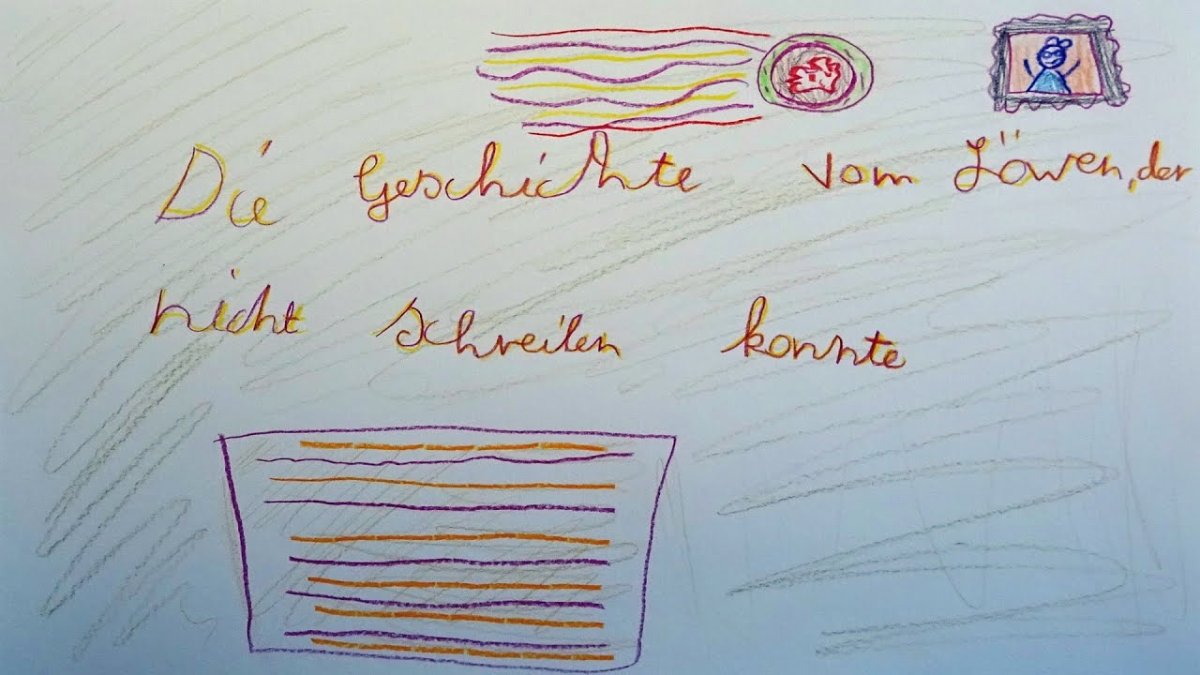 Die Geschichte vom Löwen, der
nicht schreiben konnte